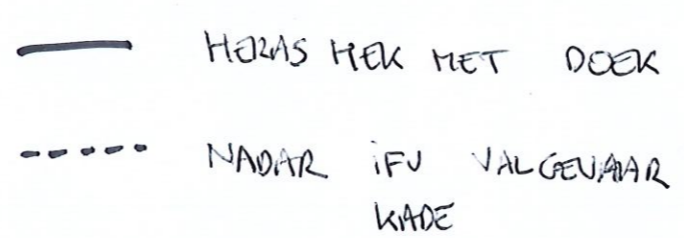 HERAS HEK MET DOEK
NADAR IFV VALGEVAAR
KADE